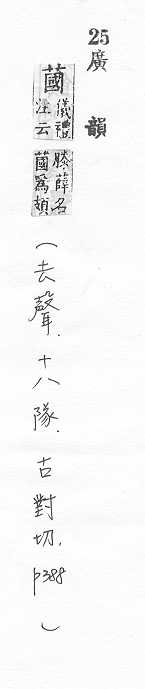 25
廣韻
蔮 儀禮注云 滕薛名蔮爲頍（去聲．十八隊．古對切，p388）